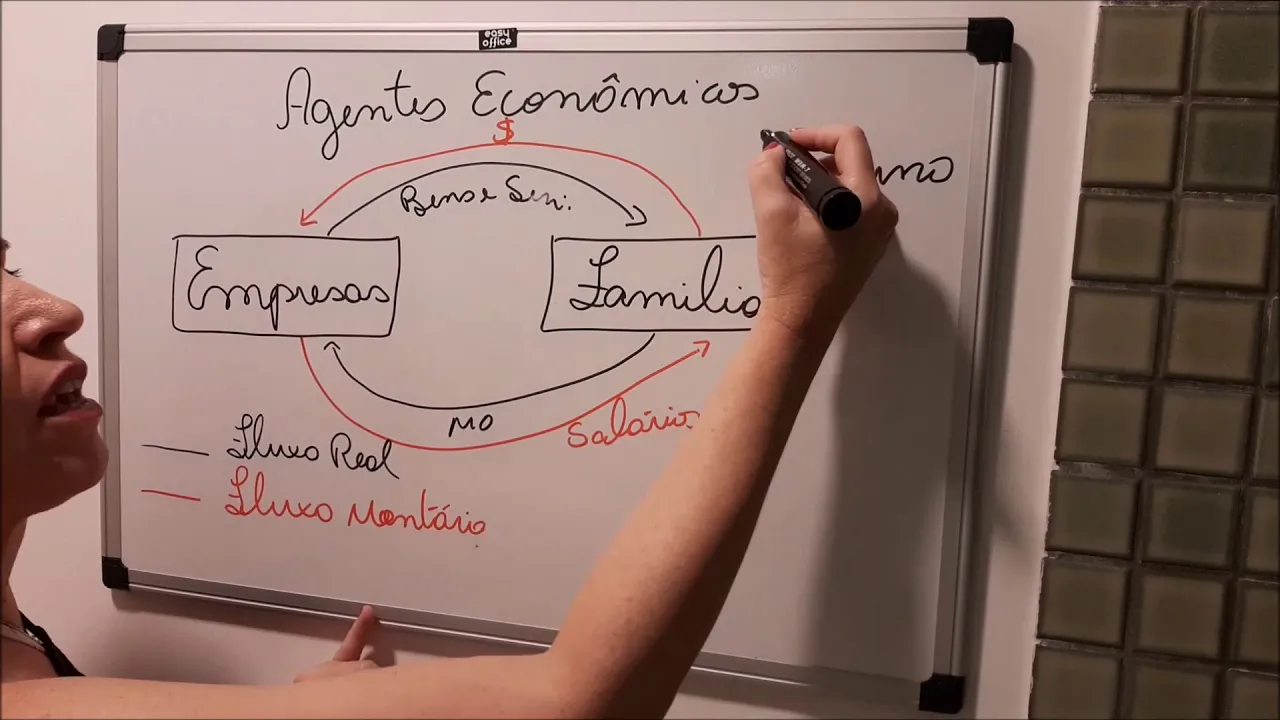 easy office
Agentes Econômicos
$
Bens e Serv.
Empresas
Família
MO
Salários
Fluxo Real
Fluxo Montário